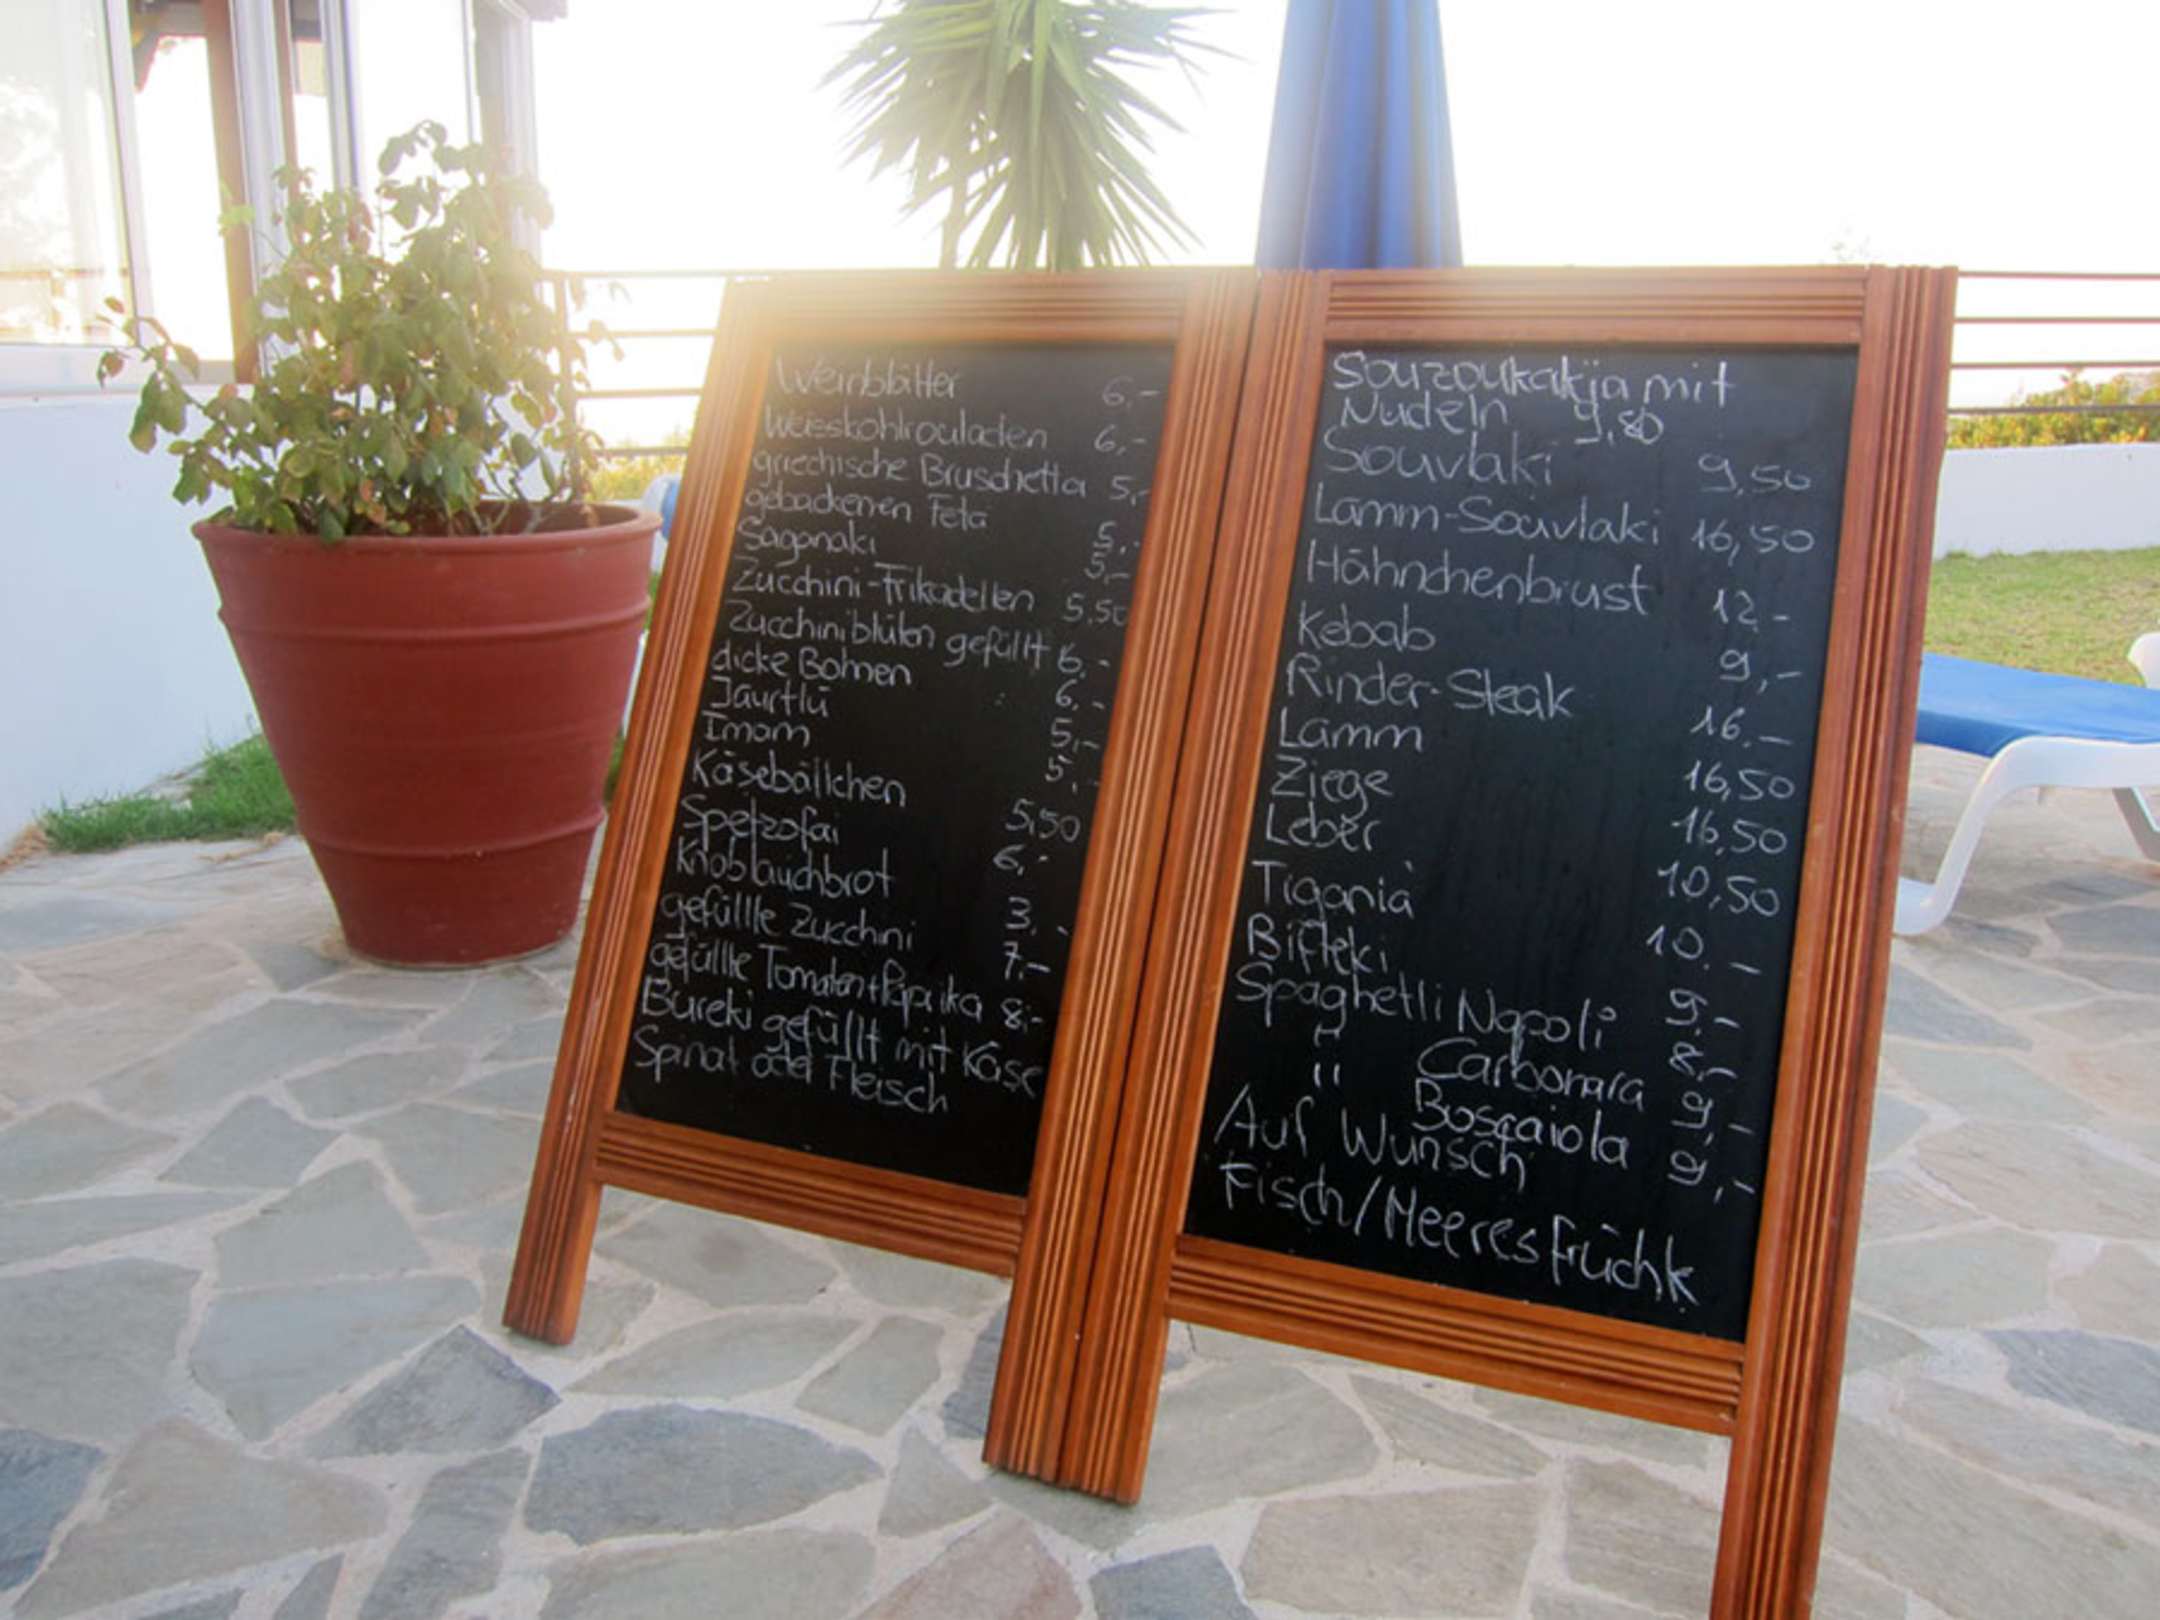 Weinblätter 6,-
Weisskohlrouladen 6,-
griechische Bruschetta 5,-
gebackenen Feta 5,-
Saganaki 5,-
Zucchini-Frikadellen 5,50
Zucchiniblüten gefüllt 6,-
dicke Bohnen 6,-
Jaurtlü 5,-
Imam 5,-
Käsebällchen 5,50
Spetzofai 6,-
Knoblauchbrot 3,-
gefüllte Zucchini 7,-
gefüllte Tomaten+Paprika 8,-
Bureki gefüllt mit Käse
Spinat oder Fleisch
Souzoukakija mit
Nudeln 9,80
Souvlaki 9,50
Lamm-Souvlaki 16,50
Hähnchenbrust 12,-
Kebab 9,-
Rinder-Steak 16.-
Lamm 16,50
Ziege 16,50
Leber 10,50
Tigania 10.-
Bifteki 9,-
Spaghetti Napoli 8,-
" Carbonara 9,-
" Boscaiola 9,-
Auf Wunsch
Fisch/Meeresfrüchte